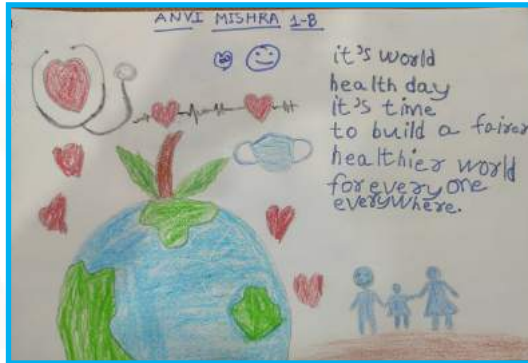 ANVI MISHRA 1-B
it's world
health day
it's time
to build a fairer
healthier world
for every one
everywhere.